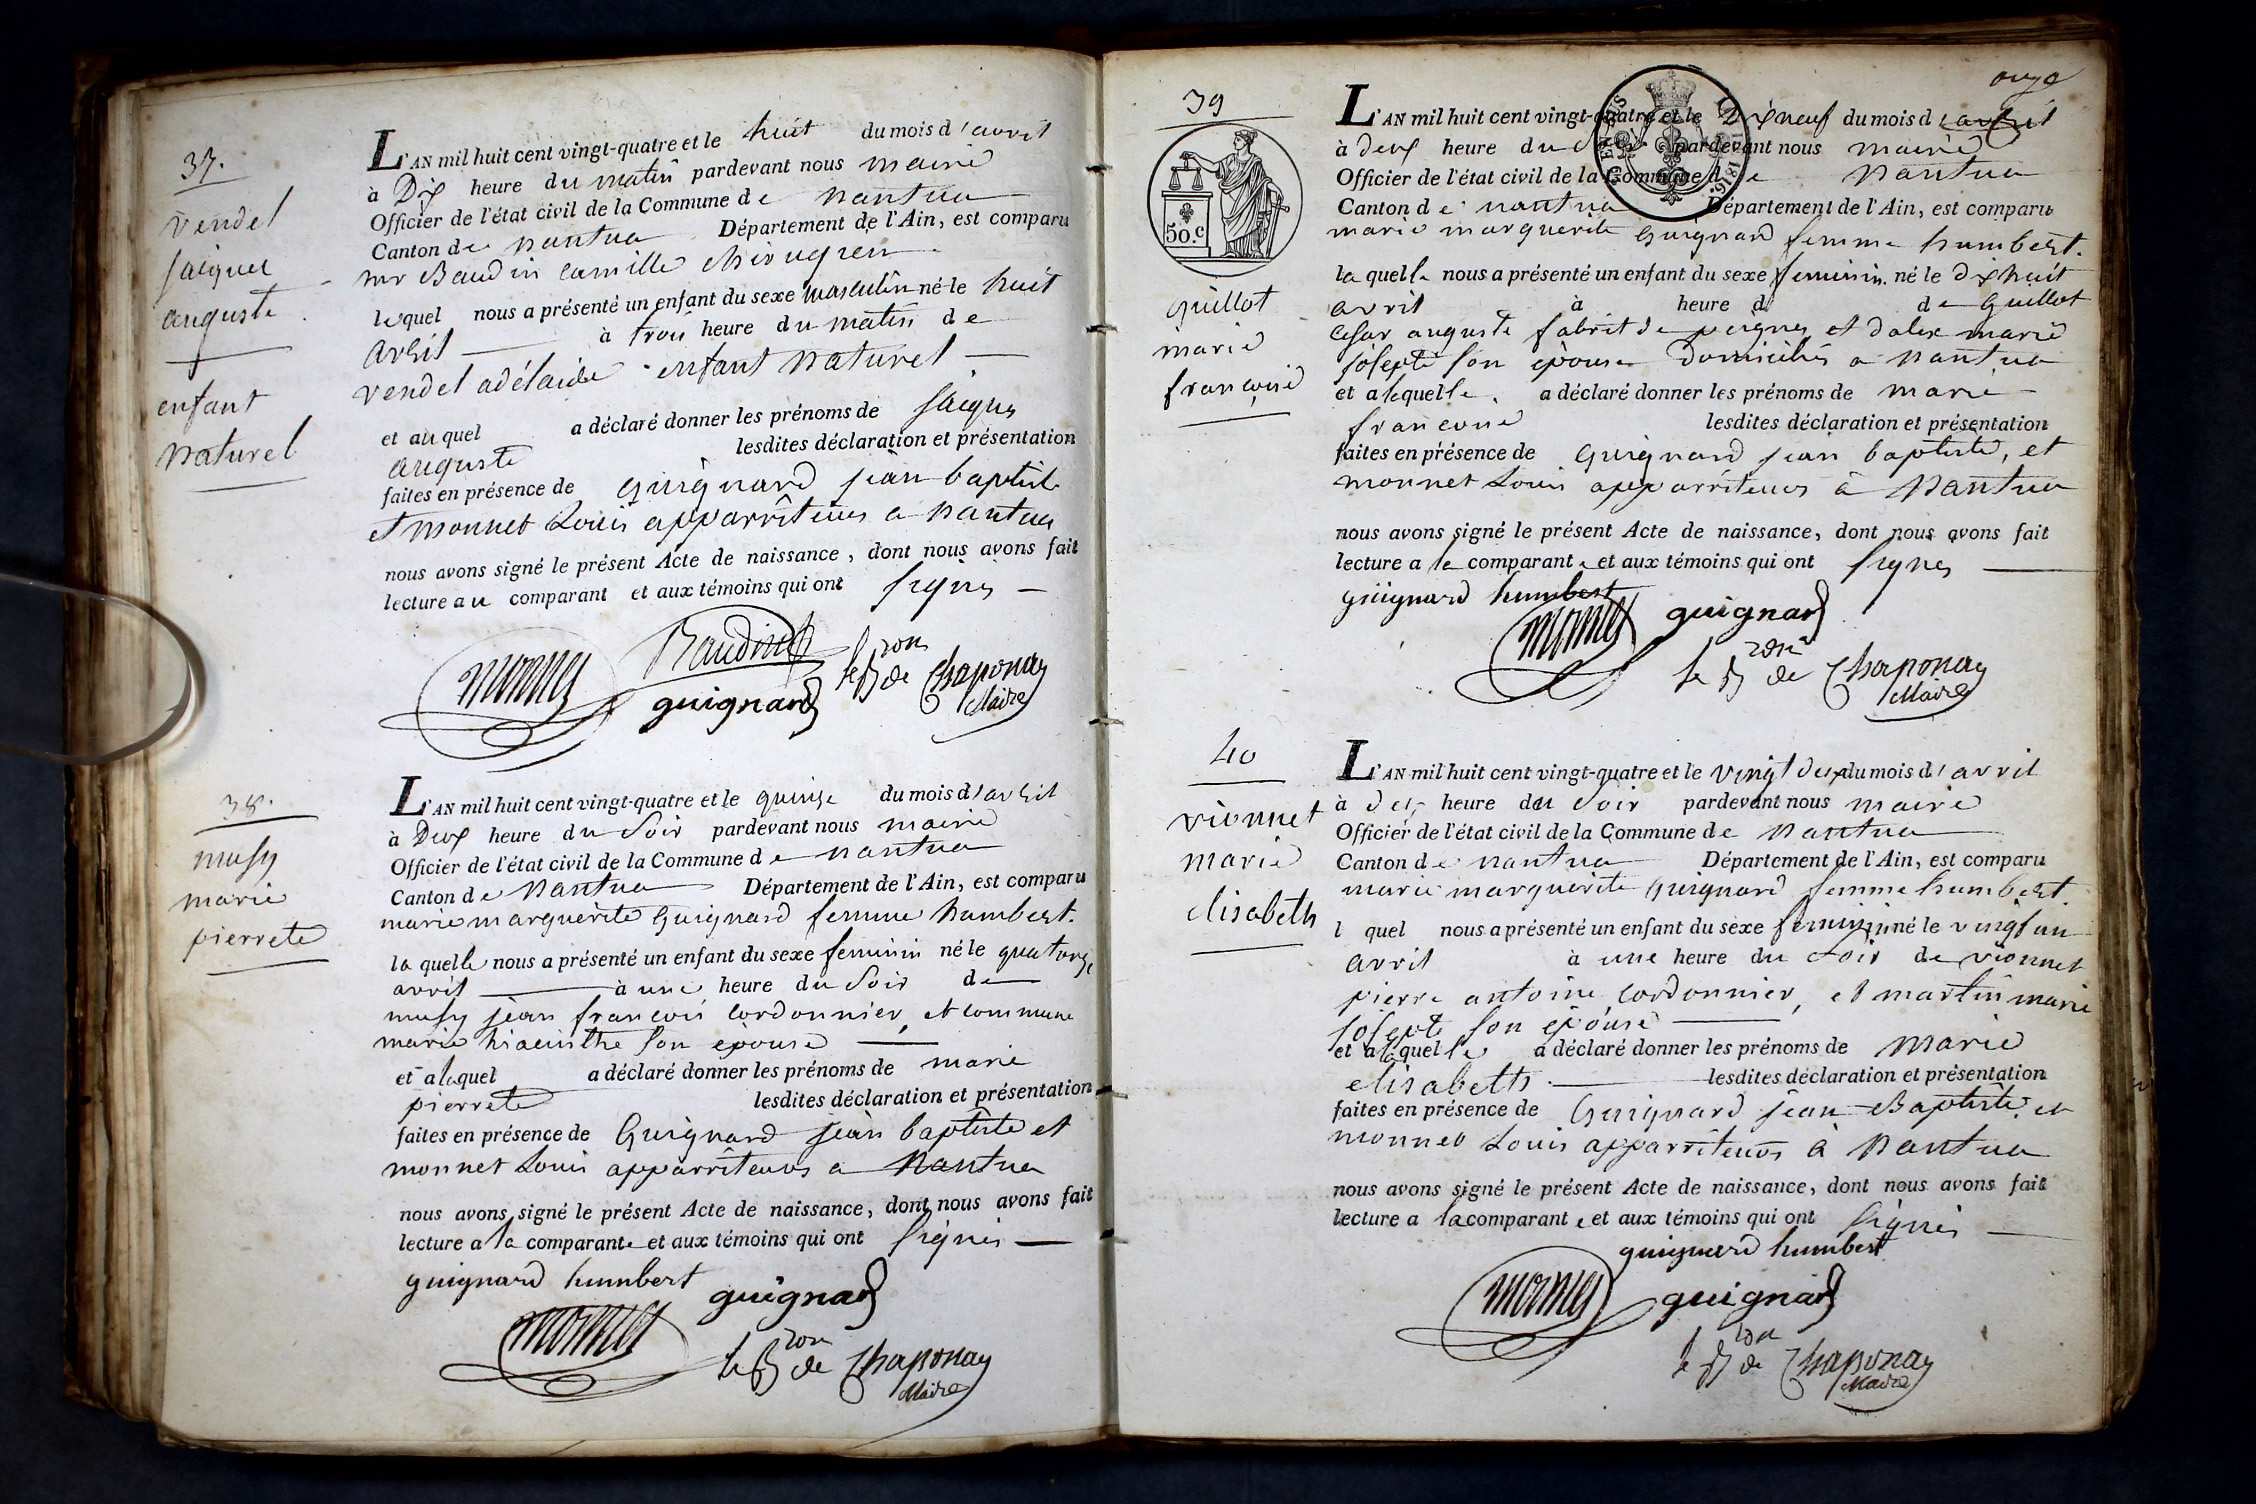 37.
vendel
Jacques
auguste
enfant
naturel
L'AN mil huit cent vingt-quatre et le huit du mois d'avril
à Dix heure du matin pardevant nous maire
Officier de l'état civil de la Commune de nantua
Canton de nantua Département de l'Ain, est comparu
mr Baudin camille chirugien
lequel nous a présenté un enfant du sexe masculin né le huit
avril à trois heure du matin de
vendel adélaide enfant naturel
et auquel a déclaré donner les prénoms de Jacques
auguste lesdites déclaration et présentation
faites en présence de guignard jean baptiste
et monnet Louis apparriteurs a nantua
nous avons signé le présent Acte de naissance, dont nous avons fait
lecture au comparant et aux témoins qui ont signés
monnet Baudin
guignard le Bron de Chaponay
Maire
38.
musy
marie
pierrete
L'AN mil huit cent vingt-quatre et le quinze du mois d'avril
à Deux heure du soir pardevant nous maire
Officier de l'état civil de la Commune de nantua
Canton de nantua Département de l'Ain, est comparu
marie marguerite Guignard femme humbert.
laquelle nous a présenté un enfant du sexe feminin né le quatorze
avril à une heure du soir de
musy jean francois cordonnier, et commune
marie hiacinthe son épouse
et alaquel a déclaré donner les prénoms de marie
pierrete lesdites déclaration et présentation
faites en présence de Guignard jean baptiste et
monnet Louis apparriteurs a nantua
nous avons signé le présent Acte de naissance, dont nous avons fait
lecture a la comparante et aux témoins qui ont signés
guignard humbert guignard
monnet
le Bron de Chaponay
Maire
onze
39
50.c
guillot
marie
francoise
L'AN mil huit cent vingt-quatre et le Dixneuf du mois d'avril
à deux heure du pardevant nous maire
Officier de l'état civil de la Commune de nantua
Canton de nantua Département de l'Ain, est comparu
marie marguerite Guignard femme humbert.
laquelle nous a présenté un enfant du sexe feminin né le dixhuit
avril à heure d de Guillot
Cesar auguste fabrit de peignes et dalex marie
josepte son épouse Domiciliés a nantua
et alaquelle a déclaré donner les prénoms de marie
francoise lesdites déclaration et présentation
faites en présence de Guignard jean baptiste, et
monnet Louis apparriteurs à nantua
nous avons signé le présent Acte de naissance, dont nous avons fait
lecture a la comparante et aux témoins qui ont signés
guignard humbert
monnet guignard
le Bron de Chaponay
Maire
40
vionnet
marie
elisabeth
L'AN mil huit cent vingt-quatre et le vingt deux du mois d'avril
à deux heure du soir pardevant nous maire
Officier de l'état civil de la Commune de nantua
Canton de nantua Département de l'Ain, est comparu
marie marguerite Guignard femme humbert.
l quel nous a présenté un enfant du sexe feminin né le vingt un
avril à une heure du soir de vionnet
pierre antoine cordonnier, et martin marie
josepte son épouse
et alaquelle a déclaré donner les prénoms de marie
elisabeth. lesdites déclaration et présentation
faites en présence de Guignard jean Baptiste et
monnet Louis apparriteurs à nantua
nous avons signé le présent Acte de naissance, dont nous avons fait
lecture a la comparante et aux témoins qui ont signés
guignard humbert
monnet guignard
le Bron de Chaponay
Maire